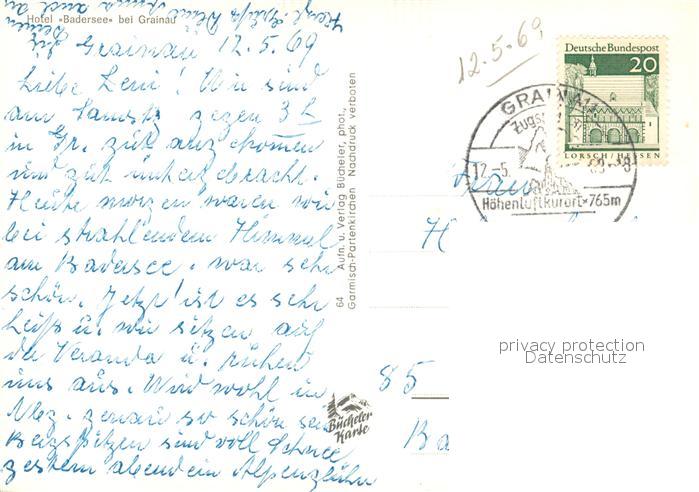 Hotel «Badersee» bei Grainau
Grainau 12.5.69
Liebe Leni! Wir sind
am Samstg gegen 3 h
in Gr. gut angekommen
und gut untergebracht.
Heute morgen waren wir
bei strahlendem Himmel
am Badersee. war sehr
schön. Jetzt ist es sehr
heiß u. wir sitzen auf
der Veranda u. ruhen
uns aus. Wird wohl in
genau so schön sein
Bergspitzen sind voll Schnee
gestern abend ein Alpenglühn
64 Aufn. u. Verlag Bücheler, phot.,
Garmisch-Partenkirchen Nachdruck verboten
Bücheler
Karte
12-5-69
Deutsche Bundespost
20
LORSCH/HESSEN
GRAINAU
12.-5.
Höhenluftkurort 765m
Frau
H
85
Ba
privacy protection
Datenschutz